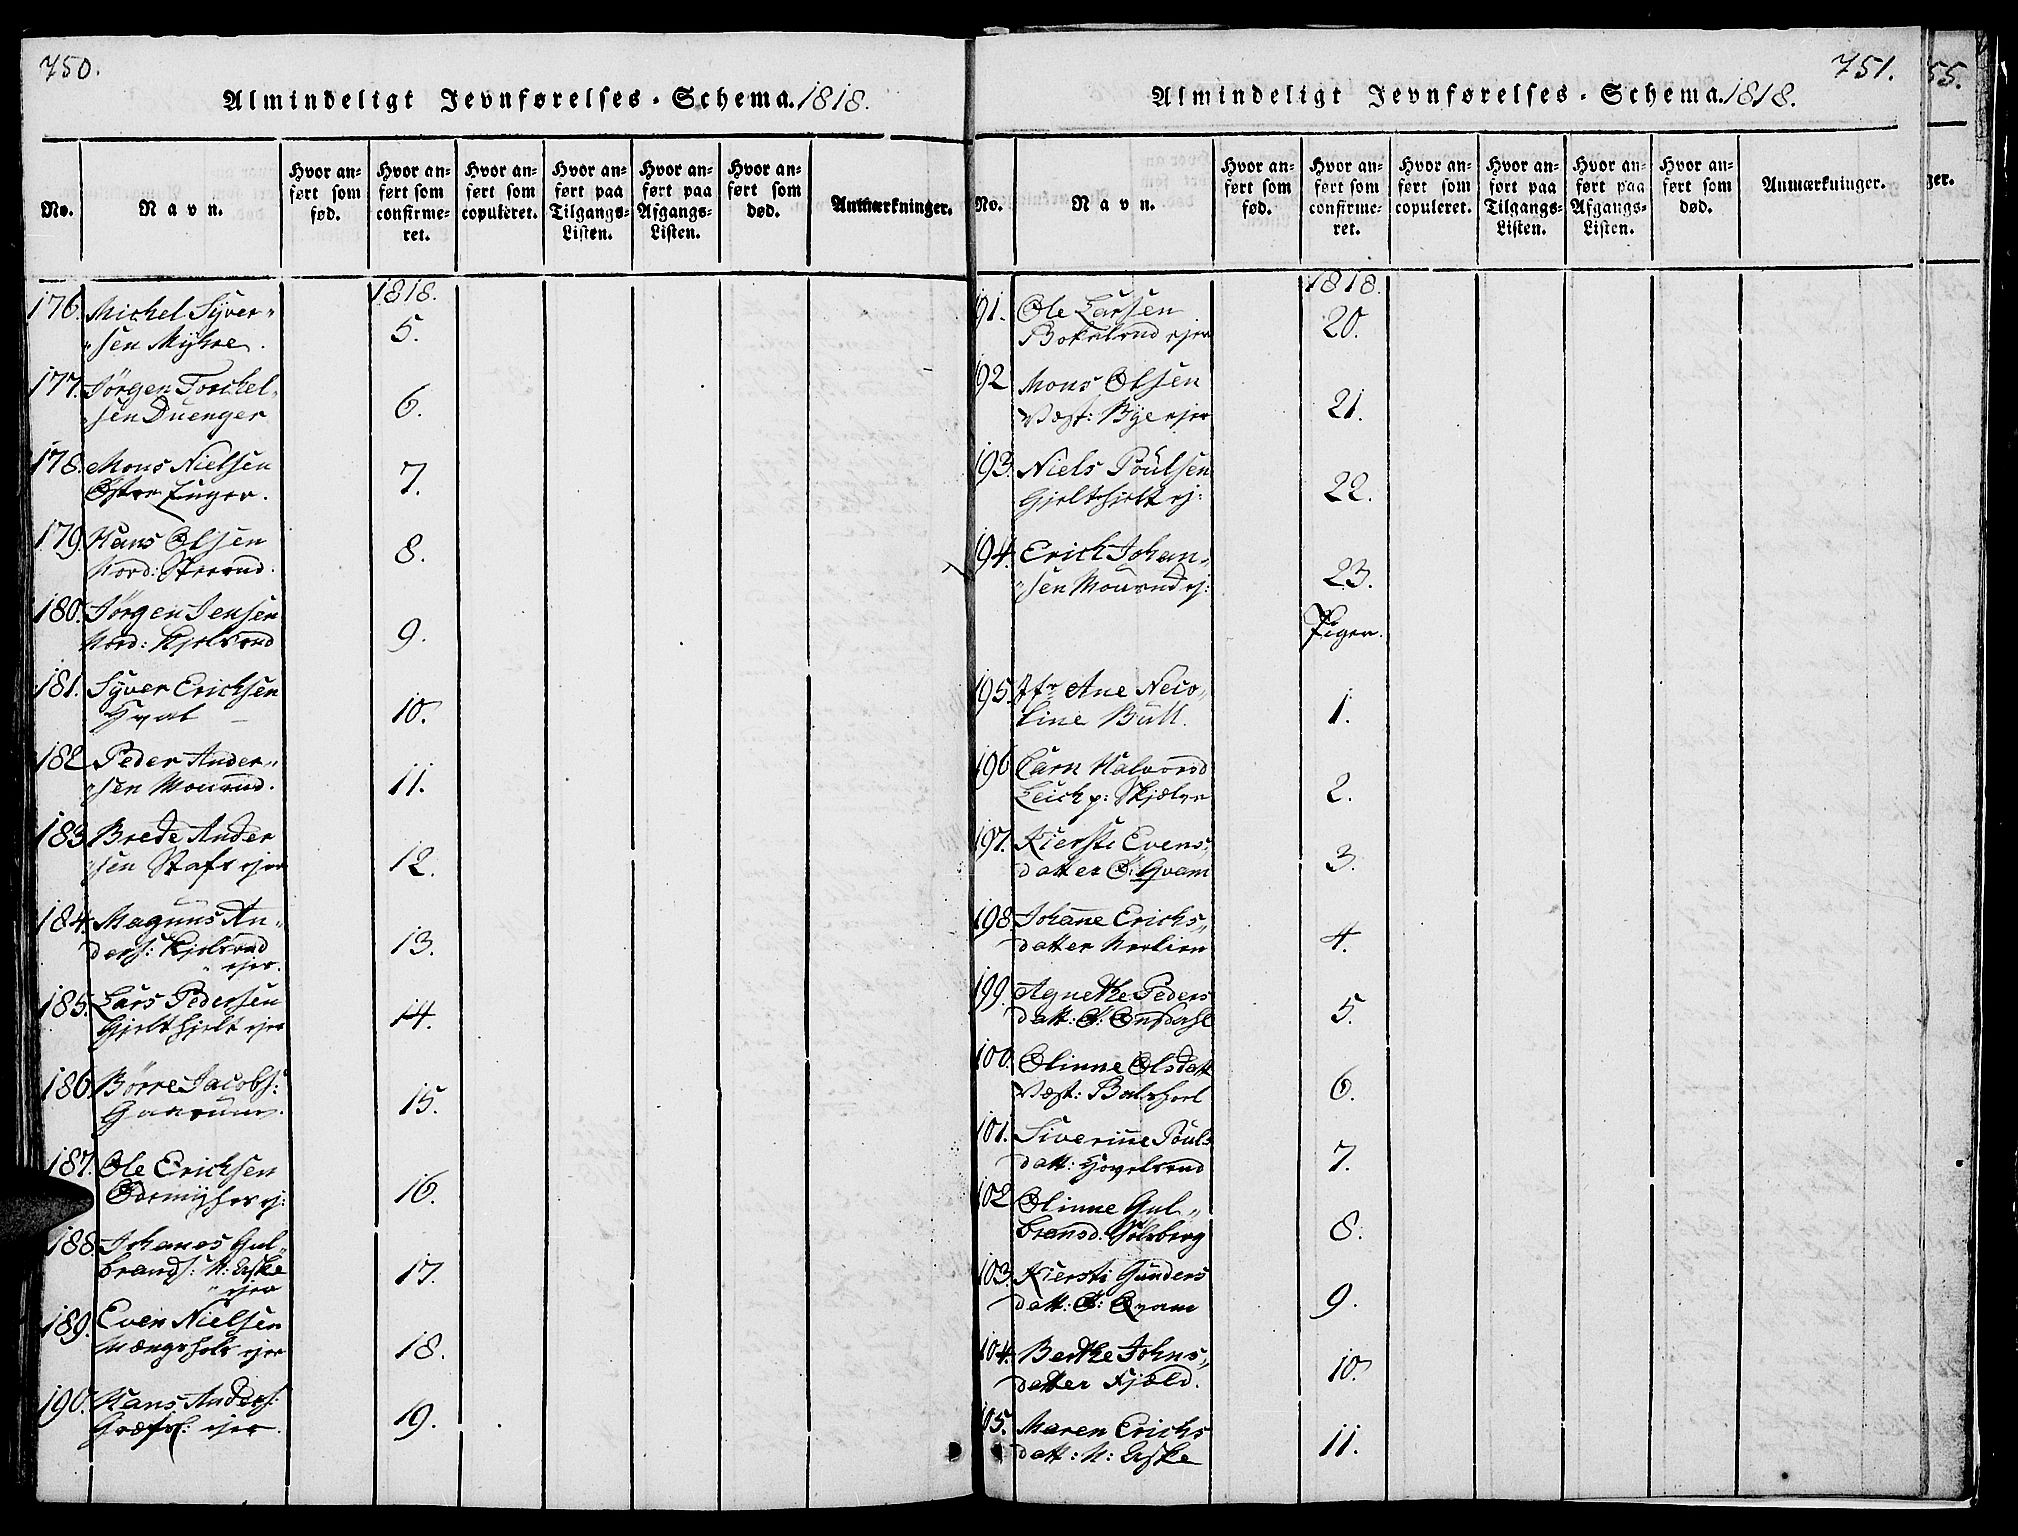 750.
Almindeligt Jevnførelses-Schema. 1818.
No.
Navn.
Hvor an-
ført som
fød.
Hvor an-
ført som
confirme-
ret.
Hvor an-
ført som
copuleret.
Hvor an-
ført paa
Tilgangs-
Listen.
Hvor an-
ført paa
Afgangs-
Listen.
Hvor an-
ført som
død.
Anmærkninger.
1818.
176. Michel Syver-
sen Myhre. 5.
177. Jørgen Torckel-
sen Duenger 6.
178. Mons Nielsen
Østre 7.
179. Hans Olsen
Nord: 8.
180. Jørgen Jensen
Nord: Kjelsrud 9.
181. Syver Erichsen
Hval 10.
182 Peder Ander-
sen Mourud. 11.
183 Brede Ander
sen ejer 12.
184. Magnus An-
ders: Kjelsrud
ejer. 13.
185. Lars Pedersen
Gjelthjelt ejer 14.
186. Børre Jacobs:
15.
187. Ole Erichsen
ej: 16.
188. Johanes Gul-
brands: N: Aske
ejer 17.
189. Even Nielsen
ejer 18.
190. Hans Anders:
ejer. 19.
751.
Almindeligt Jevnførelses-Schema. 1818.
No.
Navn.
Hvor an-
ført som
fød.
Hvor an-
ført som
confirme-
ret.
Hvor an-
ført som
copuleret.
Hvor an-
ført paa
Tilgangs-
Listen.
Hvor an-
ført paa
Afgangs-
Listen.
Hvor an-
ført som
død.
Anmærkninger.
1818.
191. Ole Larsen
ejer 20.
192 Mons Olsen
Væst: Bye ejer 21.
193. Niels Poulsen
Gjelthjelt ej: 22.
194. Erich Johan-
sen Mourud ej: 23.
Piger.
195. Jfr Ane Neco-
line Bull. 1.
196 Karn Halvorsd
p: Skjælve 2.
197. Kiersti Evens-
datter Ø: Qvam 3.
198. Johanne Erichs-
datter 4.
199. Agnethe Peders
datt: Ø: 5.
100. Olinne Olsdatt
Væst: 6.
101. Siverinne Pouls
datt: Hovelsrud 7.
102 Olinne Gul-
bransd. Solberg 8.
103. Kiersti Gunders
datt: Ø: Qvam 9.
104. Berthe Johns-
datter Fjæld. 10.
105. Maren Erichs
datt: N: Aske 11.
55.
ger.